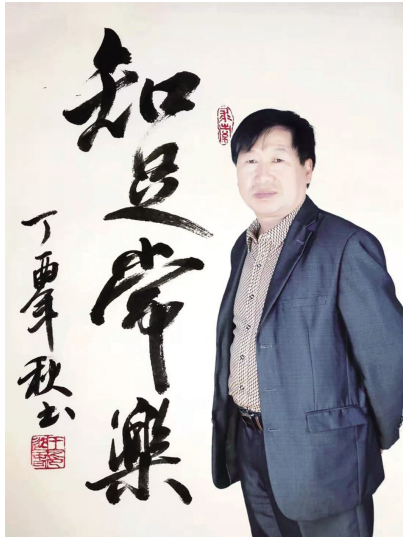 知足常樂
丁酉年秋书